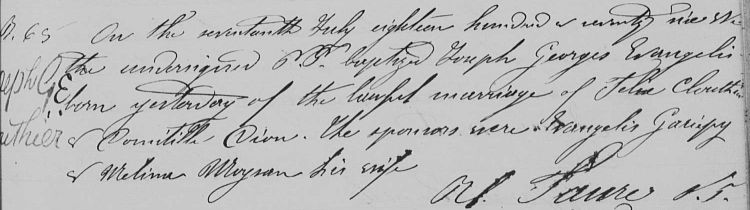 B. 65 On the seventeenth July eighteen hundred & seventy nine We
the undersigned P.P. baptized Joseph Georges Evangelis
born yesterday of the lawful marriage of Felix Clouthier
& Domitille Dion. The sponsors were Evangelis Gariepy
& Melina Moysan his wife
Faure P.P.